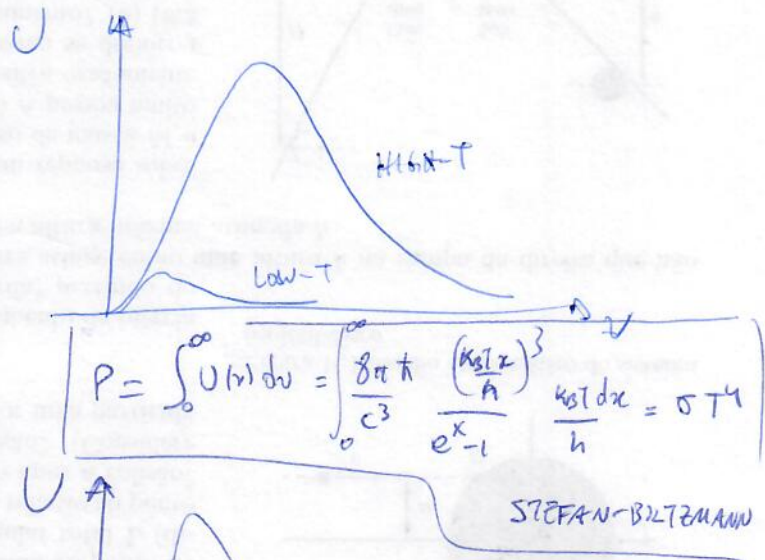 U
HIGH-T
LOW-T
ν
P = ∫₀^∞ U(ν) dν = ∫₀^∞ 8π h/c³ (K_B T x/h)³/(e^x - 1) K_B T dx/h = σ T⁴
U
STEFAN-BOLTZMANN